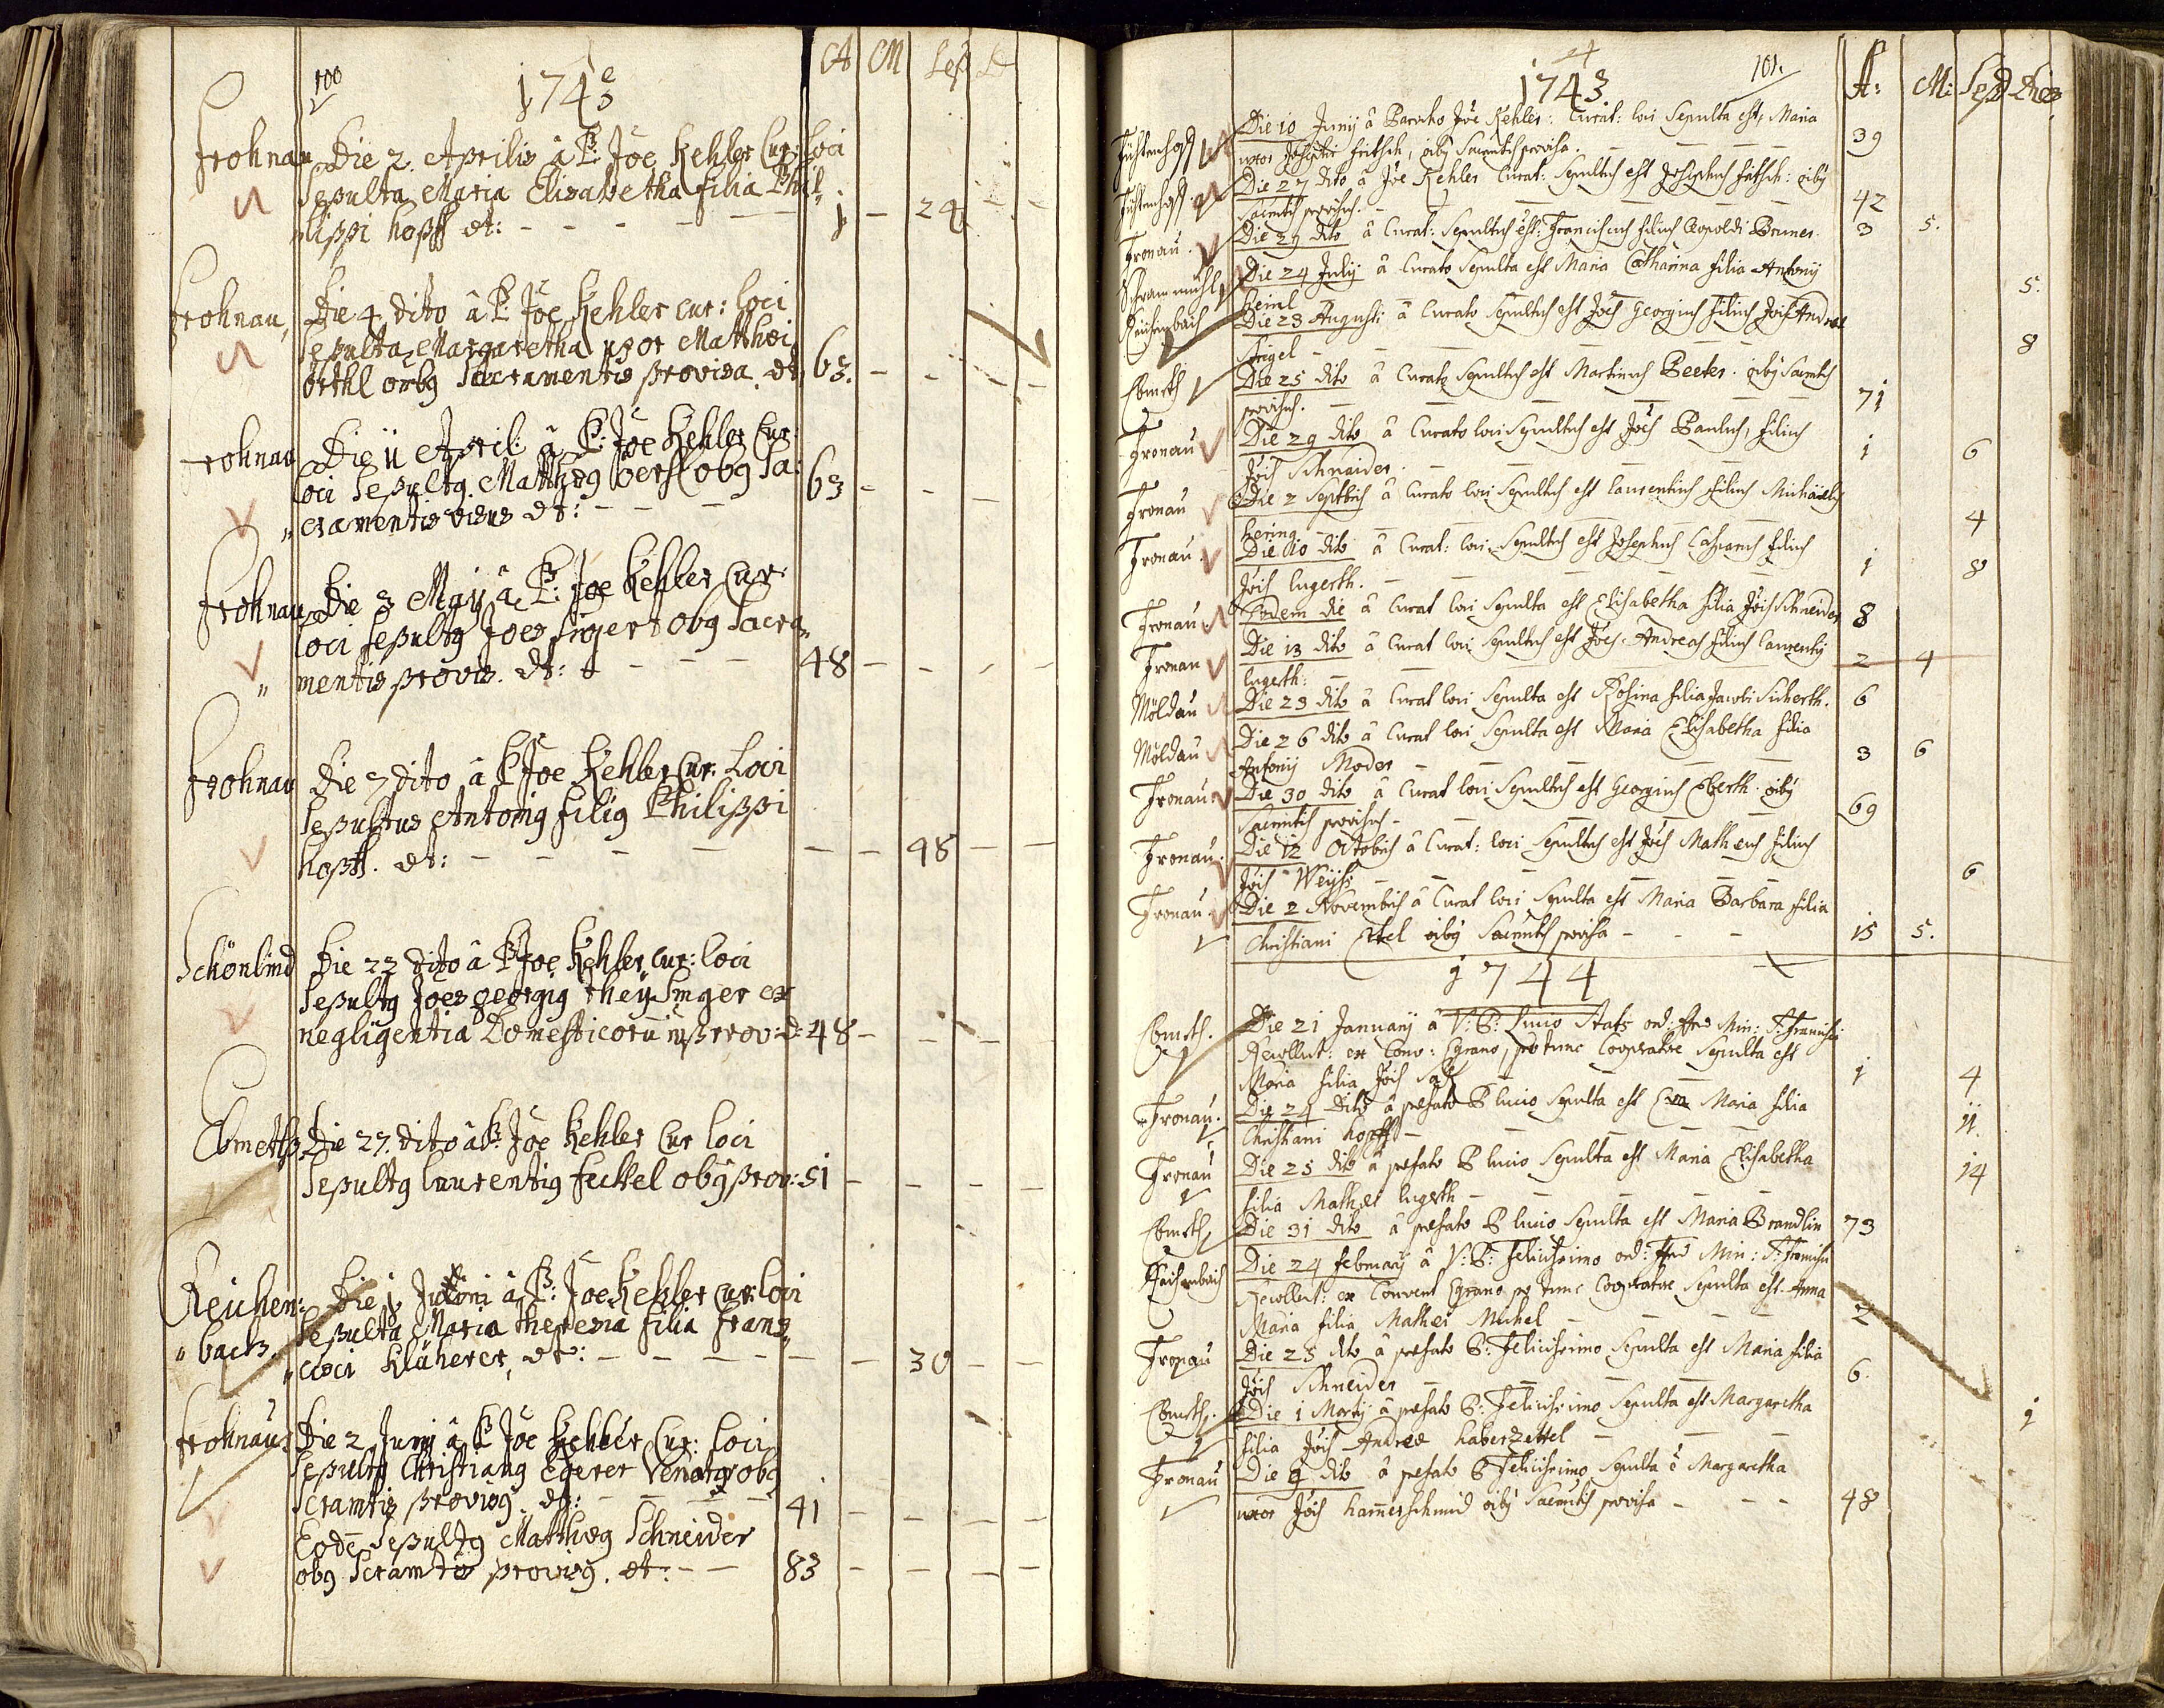 100
1743
A M Sep D
Frohnau Die 2. Aprilis â P: Joe Kehler Cur: Loci
Sepulta Maria Elisabetha filia Phi-
lippi hopff æt: - - - 1 - 24 -
Frohnau, Die 4 dito â P: Joe Kehler cur: loci
Sepulta Margaretha uxor Matthæi
örthl oïbg Sacramentis provisa. æt. 63. - - - -
Frohnau Die 11 April: â P: Joe Kehler Cur:
loci Sepultg Matthæg obg Sa:
cramentis æt: - - - 63 - - -
Frohnau Die 3 Maij â P: Joe Kehler Cur:
loci Sepultg Joes obg Sacra
mentis provis. æt: - - - 48 - - - -
Frohnau Die 7 dito â P Joe Kehler Cur. Loci
Sepultus Antonig filig Philippi
hopff. æt: - - - - - 48 - -
Schönlind Die 22 dito â P Joe Kehler cur: loci
Sepultg Joes georgig ex
negligentia Domesticorū 48 - - -
Ebmeth. Die 27. dito â P. Joe Kehler Cur loci
Sepultg laurentig feckel obg prov: 51 - - - -
Reichen: Die 1 Juni â P: Joe Kehler cur: loci
bach. Sepulta Maria theresia filia Fran
cisci Kläherer, æt: - - - - - 30 - -
Frohnau Die 2 Junij â P Joe Kehler Cur: loci
Sepultg Christiang Egerer Venatgr obg
Scramtis provisg. æt: - - - 41 - - - -
Eodē Sepultg Matthæg Schneider
obg Scramtis provisg. æt: - - 83 - - - -
1743. 101.
A: M: Sep Dies
Die 10 Junij â Parocho Joe Kehler: Curat: loci Sepulta est, Maria
uxor Josephi fritsch, oibg Sacmtis provisa. - - - 39
Die 27 dito â Joe Kehler Curat: Sepultus est Josephus fritsch: oibg
Sacmtis provisus. - - - - 42
Fronau. Die 29 dito â Curat: Sepultus est: Franciscus filius Leopoldi Bruner. 3 5.
Schrammühl Die 24 Julij â Curato Sepulta est Maria Catharina filia Antonij
heinl 5.
Reichenbach Die 23 Augusti â Curato Sepultus est Joēs Georgius filius Jois Andreæ
Stigel - - - 8
Ebmeth Die 25 dito â Curato Sepultus est Martinus Beeter. oibg Sacmtis
provisus. - - - 71
Fronau Die 29 dito â Curato loci Sepultus est Joēs Paulus, filius
Jois Schneider. - - - 1 6
Fronau Die 2 Septbris â Curato loci Sepultus est laurentius filius Michaelis
hering - - - 4
Fronau. Die 10 dito â Curat: loci Sepultus est Josephus Casparus filius
Jois lugerth. - - - 1 8
Fronau. Eodem die â Curat loci Sepulta est Elisabetha filia Jois Schneider 8
Fronau Die 13 dito â Curat loci Sepultus est Joēs Andreas filius laurentij
lugerth: - 2 4
Möldau Die 23 dito â Curat loci Sepulta est Rosina filia Jacobi Sicherth. 6
Möldau Die 26 dito â Curat loci Sepulta est Maria Elisabetha filia
Antonij Moder - - - 3 6
Fronau. Die 30 dito â Curat loci Sepultus est Georgius Eberth. oibg
Sacmtis provisus - - - 69
Fronau. Die 12 Octobris â Curat: loci Sepultus est Joēs Matheus filius
Jois Weijss - - - 6
Fronau. Die 2 Novembris â Curat loci Sepulta est Maria Barbara filia
Christiani Ertel oibg Sacmtis provisa - - - 15 5.
1744
Ebmeth. Die 21 Januarij â V: P: Lucio Stats ord: Frs Min: S: Francisci
Recollect: ex Conv: Egrano, pro tunc Cooperatore Sepulta est
Maria filia Jois 1 4
Fronau. Die 24 dito â præfato P lucio Sepulta est Eva Maria filia
Christiani hopff - - - 11.
Fronau Die 25 dito â præfato P lucio Sepulta est Maria Elisabetha
filia Mathei lugerth - - - 14
Ebmeth, Die 31 dito â præfato P lucio Sepulta est Maria Brandlin 73
Reichenbach Die 24 februarij â V: P: Felicissimo ord: Frs Min: S: Francisci
Recollect: ex Convent Egrano pro tunc Cooperatore Sepulta est Anna
Maria filia Mathei Michel - - - 2
Fronau Die 25 dito â præfato P: Felicissimo Sepulta est Maria filia
Jois Schneider - - - 6.
Ebmeth. Die 1 Martij â præfato P: Felicissimo Sepulta est Margaretha
filia Jois Andreæ haberzettel - - - 1
Fronau Die 9 dito â præfato P Felicissimo Sepulta ē Margaretha
uxor Jois ham̄erschmid oibg Sacmtis provisa - - - 48